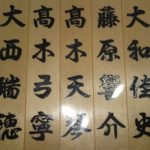 大和佳史
藤原響介
高木天琴
高木弓寧
大西瑞穂